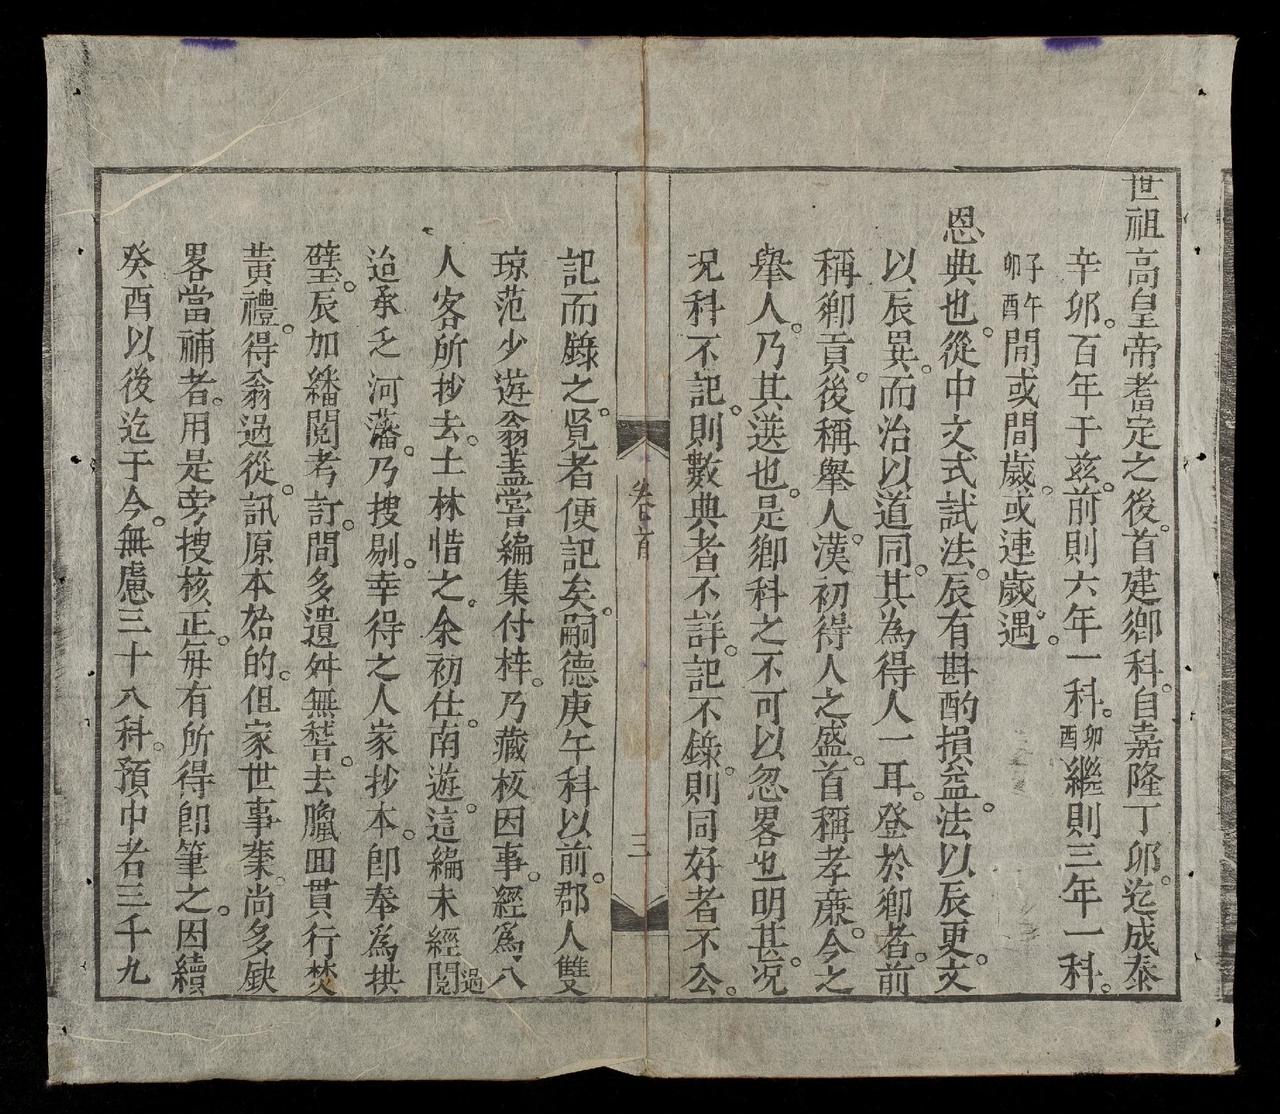 世祖高皇帝耆定之後。首建鄉科。自嘉隆丁卯。迄成泰
辛卯。百年于茲。前則六年一科。卯酉繼則三年一科。
子午卯酉間或間歲。或連歲。遇
恩典也。從中文式試法。辰有斟酌損益。法以辰更。文
以辰異。而治以道同。其為得人一耳。登於鄉者。前
稱鄉貢。後稱舉人。漢初得人之盛。首稱孝廉。今之
舉人。乃其選也。是鄉科之不可以忽畧也明甚。况
况科不記。則數典者不詳。記不錄。則同好者不公。
卷首
三
記而錄之。覽者便記矣。嗣德庚午科以前。郡人雙
瓊范少遊翁蓋嘗編集付梓。乃藏板因事。經為人
人客所抄去。士林惜之。余初仕。南遊。這編未經閱過
迨承乏河藩。乃搜剔。幸得之人家抄本。卽奉為拱
璧。辰加繙閱考訂。間多遺舛無稽。去臘回貫行焚
黃禮。得翁過從。訊原本始的。但家世事業。尚多缺
畧當補者。用是旁搜核正。每有所得卽筆之。因續
癸酉以後迄于今。無慮三十八科。預中者三千九